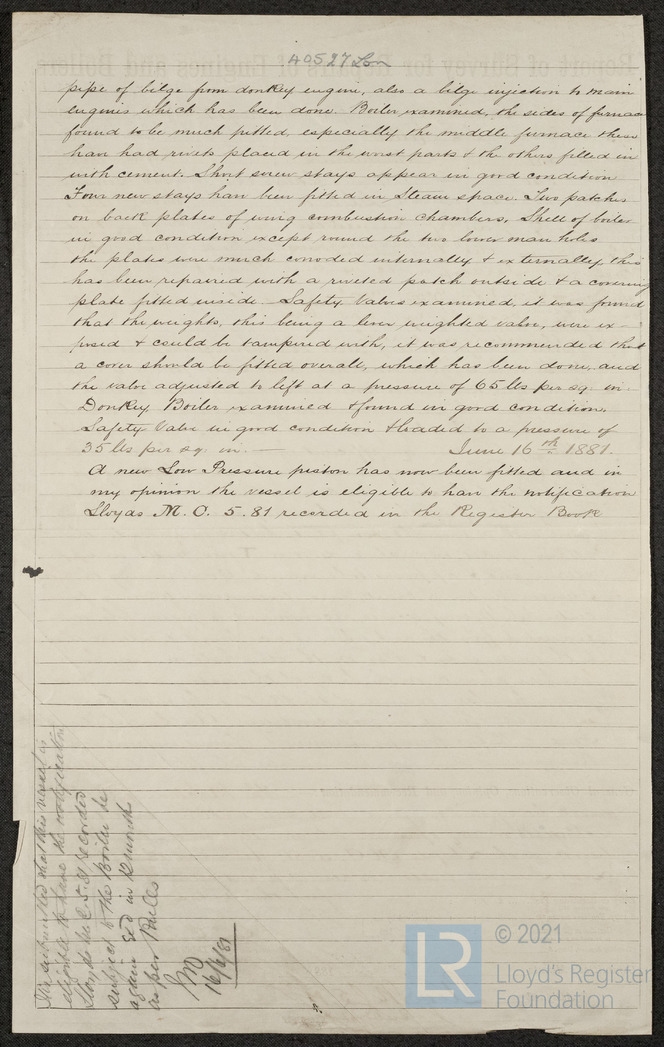 40527 Lon
pipe of bilge from donkey engine, also a bilge injection to main
engines which has been done. Boiler examined, the sides of furnaces
found to be much pitted, especially the middle furnace these
have had rivets placed in the worst parts & the others filled in
with cement. Short screw stays appear in good condition
Four new stays have been fitted in Steam space. Two patches
on back plates of wing combustion chambers. Shell of boiler
in good condition except round the two lower man holes
the plates were much corroded internally & externally, this
has been repaired with a riveted patch outside & a covering
plate fitted inside. Safety Valves examined, it was found
that the weights, this being a lever weighted valve, were ex-
posed & could be tampered with, it was recommended that
a cover should be fitted overall, which has been done, and
the valve adjusted to lift at a pressure of 65 lbs per sq. in.
Donkey Boiler examined & found in good condition.
Safety Valve in good condition & loaded to a pressure of
35 lbs per sq. in. — June 16th 1881.
A new Low Pressure piston has now been fitted and in
my opinion the vessel is eligible to have the notification
Lloyds M. C. 5. 81 recorded in the Register Book
It is submitted that this vessel is
eligible to have the notification
Lloyds M.C. 5.81 recorded
subject to the Boiler be
again in 12 months
as per Rules
16/6/81
LR
© 2021
Lloyd's Register
Foundation